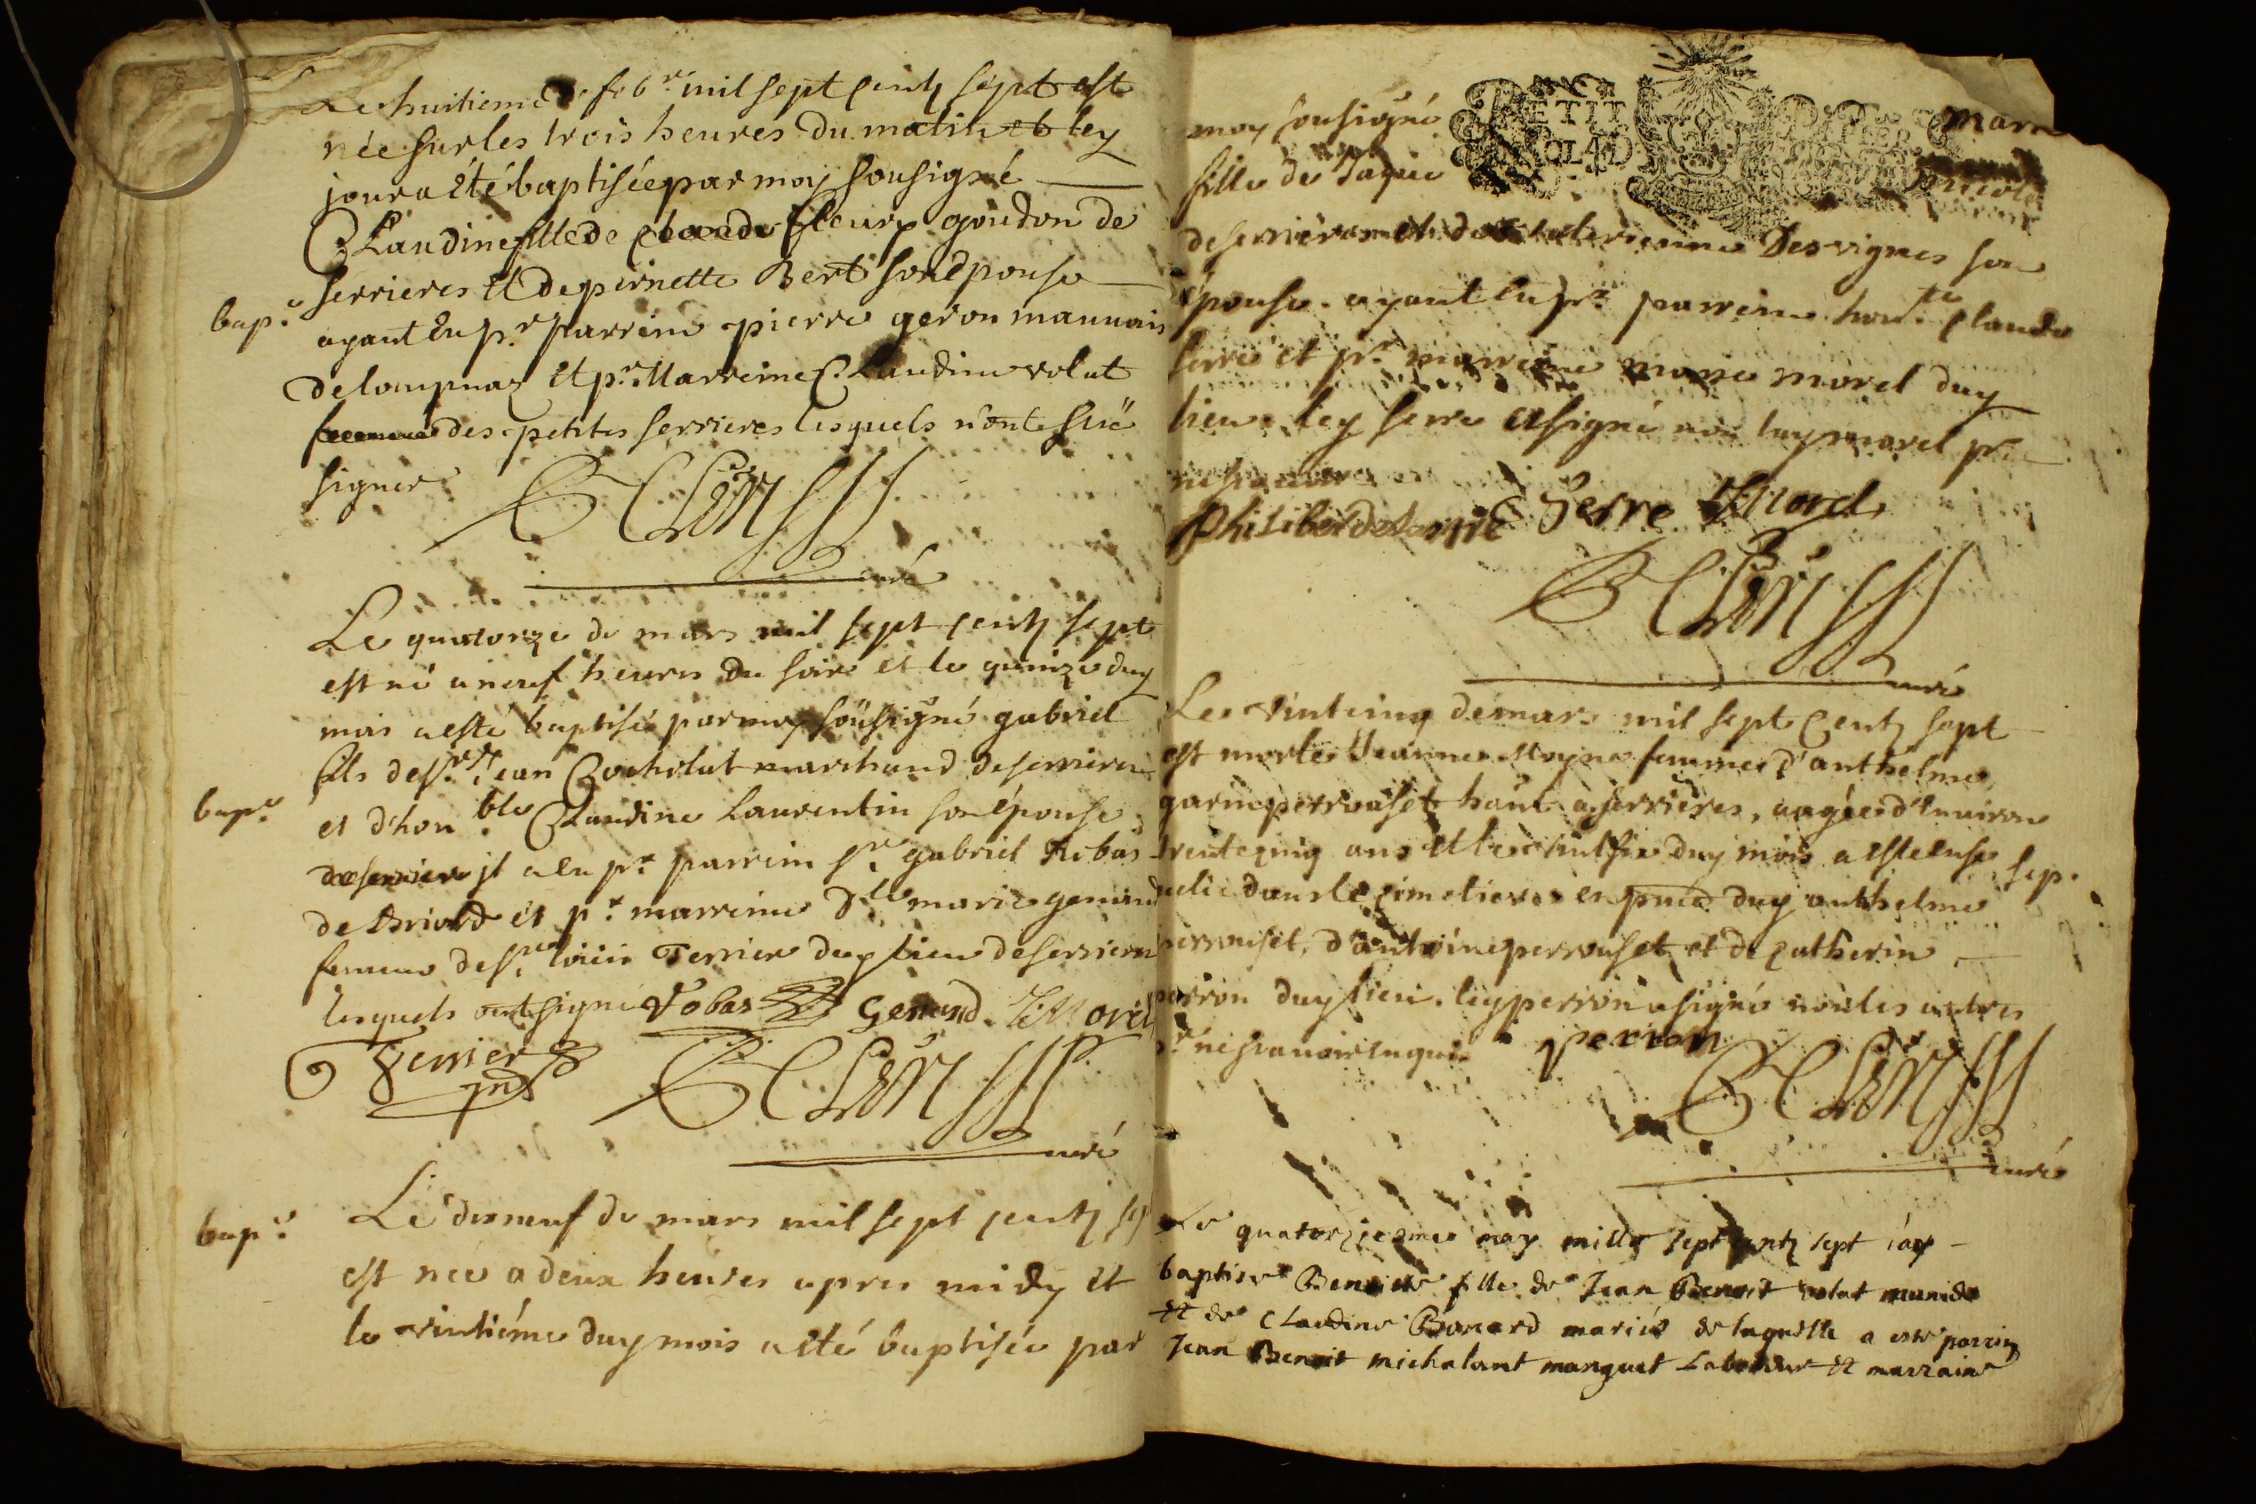 Le huitieme de feb.re mil sept centz sept est
née sur les trois heures du matin et ley
jour a été baptisée par moy sousigné
Claudine fille de Claude fleury goudon de
serrieres et de pernette Bert son épouse
bap.e
ayant eu p.r parrein pierre geron mauvais
de lompnaz et p.r Marreine Claudine volut
femme des petites serrieres lesquels n'ont sceü
signer
curé
Le quatorze de mars mil sept centz sept
est né a neuf heures du soir et le quinze duy
mois a esté baptisé par moy soüsigné gabriel
fils de s.r Jean Cocholat marchand de serrieres
et d'hon.ble Claudine Laurentin son épouse
bap.e
de serrieres jl a eu p.r parrein s.r gabriel
de Briord et p.r marreine d.lle marie genand
femme de s.r Terrier duy lieu de serrieres
lesquels ont signé genand Morel
Terrier
curé
bap.e
Le disneuf de mars mil sept centz sept
est née a deux heures apres midy et
le vintiéme duy mois a été baptisée par
PETIT PAPIER
moy sousigné
fille de
de serrieres et de Desvignes son
épouse. ayant eu p.r parrein hon.te claude
serre et p.r marreine marie morel duy
lieu. ley serre a signé non laymorel p.r
ne scavoir
philiber Serre Morel
curé
Le vintcinq de mars mil sept centz sept
est morte Jeanne Moyne femme d'anthelme
garin perrouset haut a serrieres, aagée d'environ
trente cinq ans et le vintsix duy mois a esté ense
sep.
uelie dans le cimetiere en duy anthelme
perrouset, d'antoine perrouset et de catherin
perron duy lieu. ley perron a signé non les autres
p.r ne scavoir enquis perron
curé
Le quatorziesme may mille sept centz sept iay
baptisé Benoiste fille de Jean Benoit volat
et de Claudine mariés de laquelle a esté parrein
Jean Benoit michalant manguet Laboureur et marraine